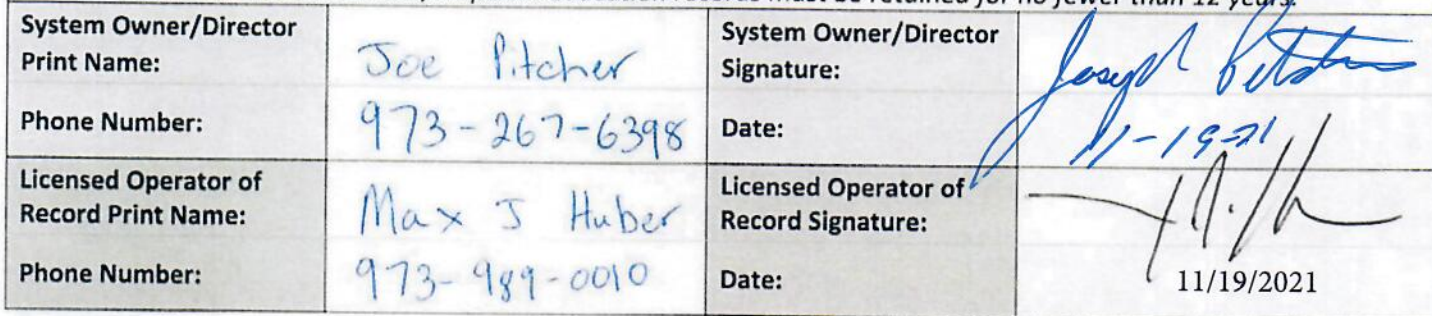 records must be retained for no fewer than 12 years.
System Owner/Director
Print Name:
Joe Pitcher
System Owner/Director
Signature:
Phone Number:
973-267-6398
Date:
11-19-21
Licensed Operator of
Record Print Name:
Max J Huber
Licensed Operator of
Record Signature:
Phone Number:
973-989-0010
Date:
11/19/2021